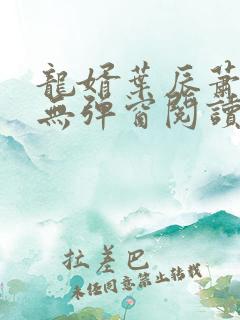 龍婿葉辰蕭
無彈窗閱讀
拉差巴
未经同意禁止转载